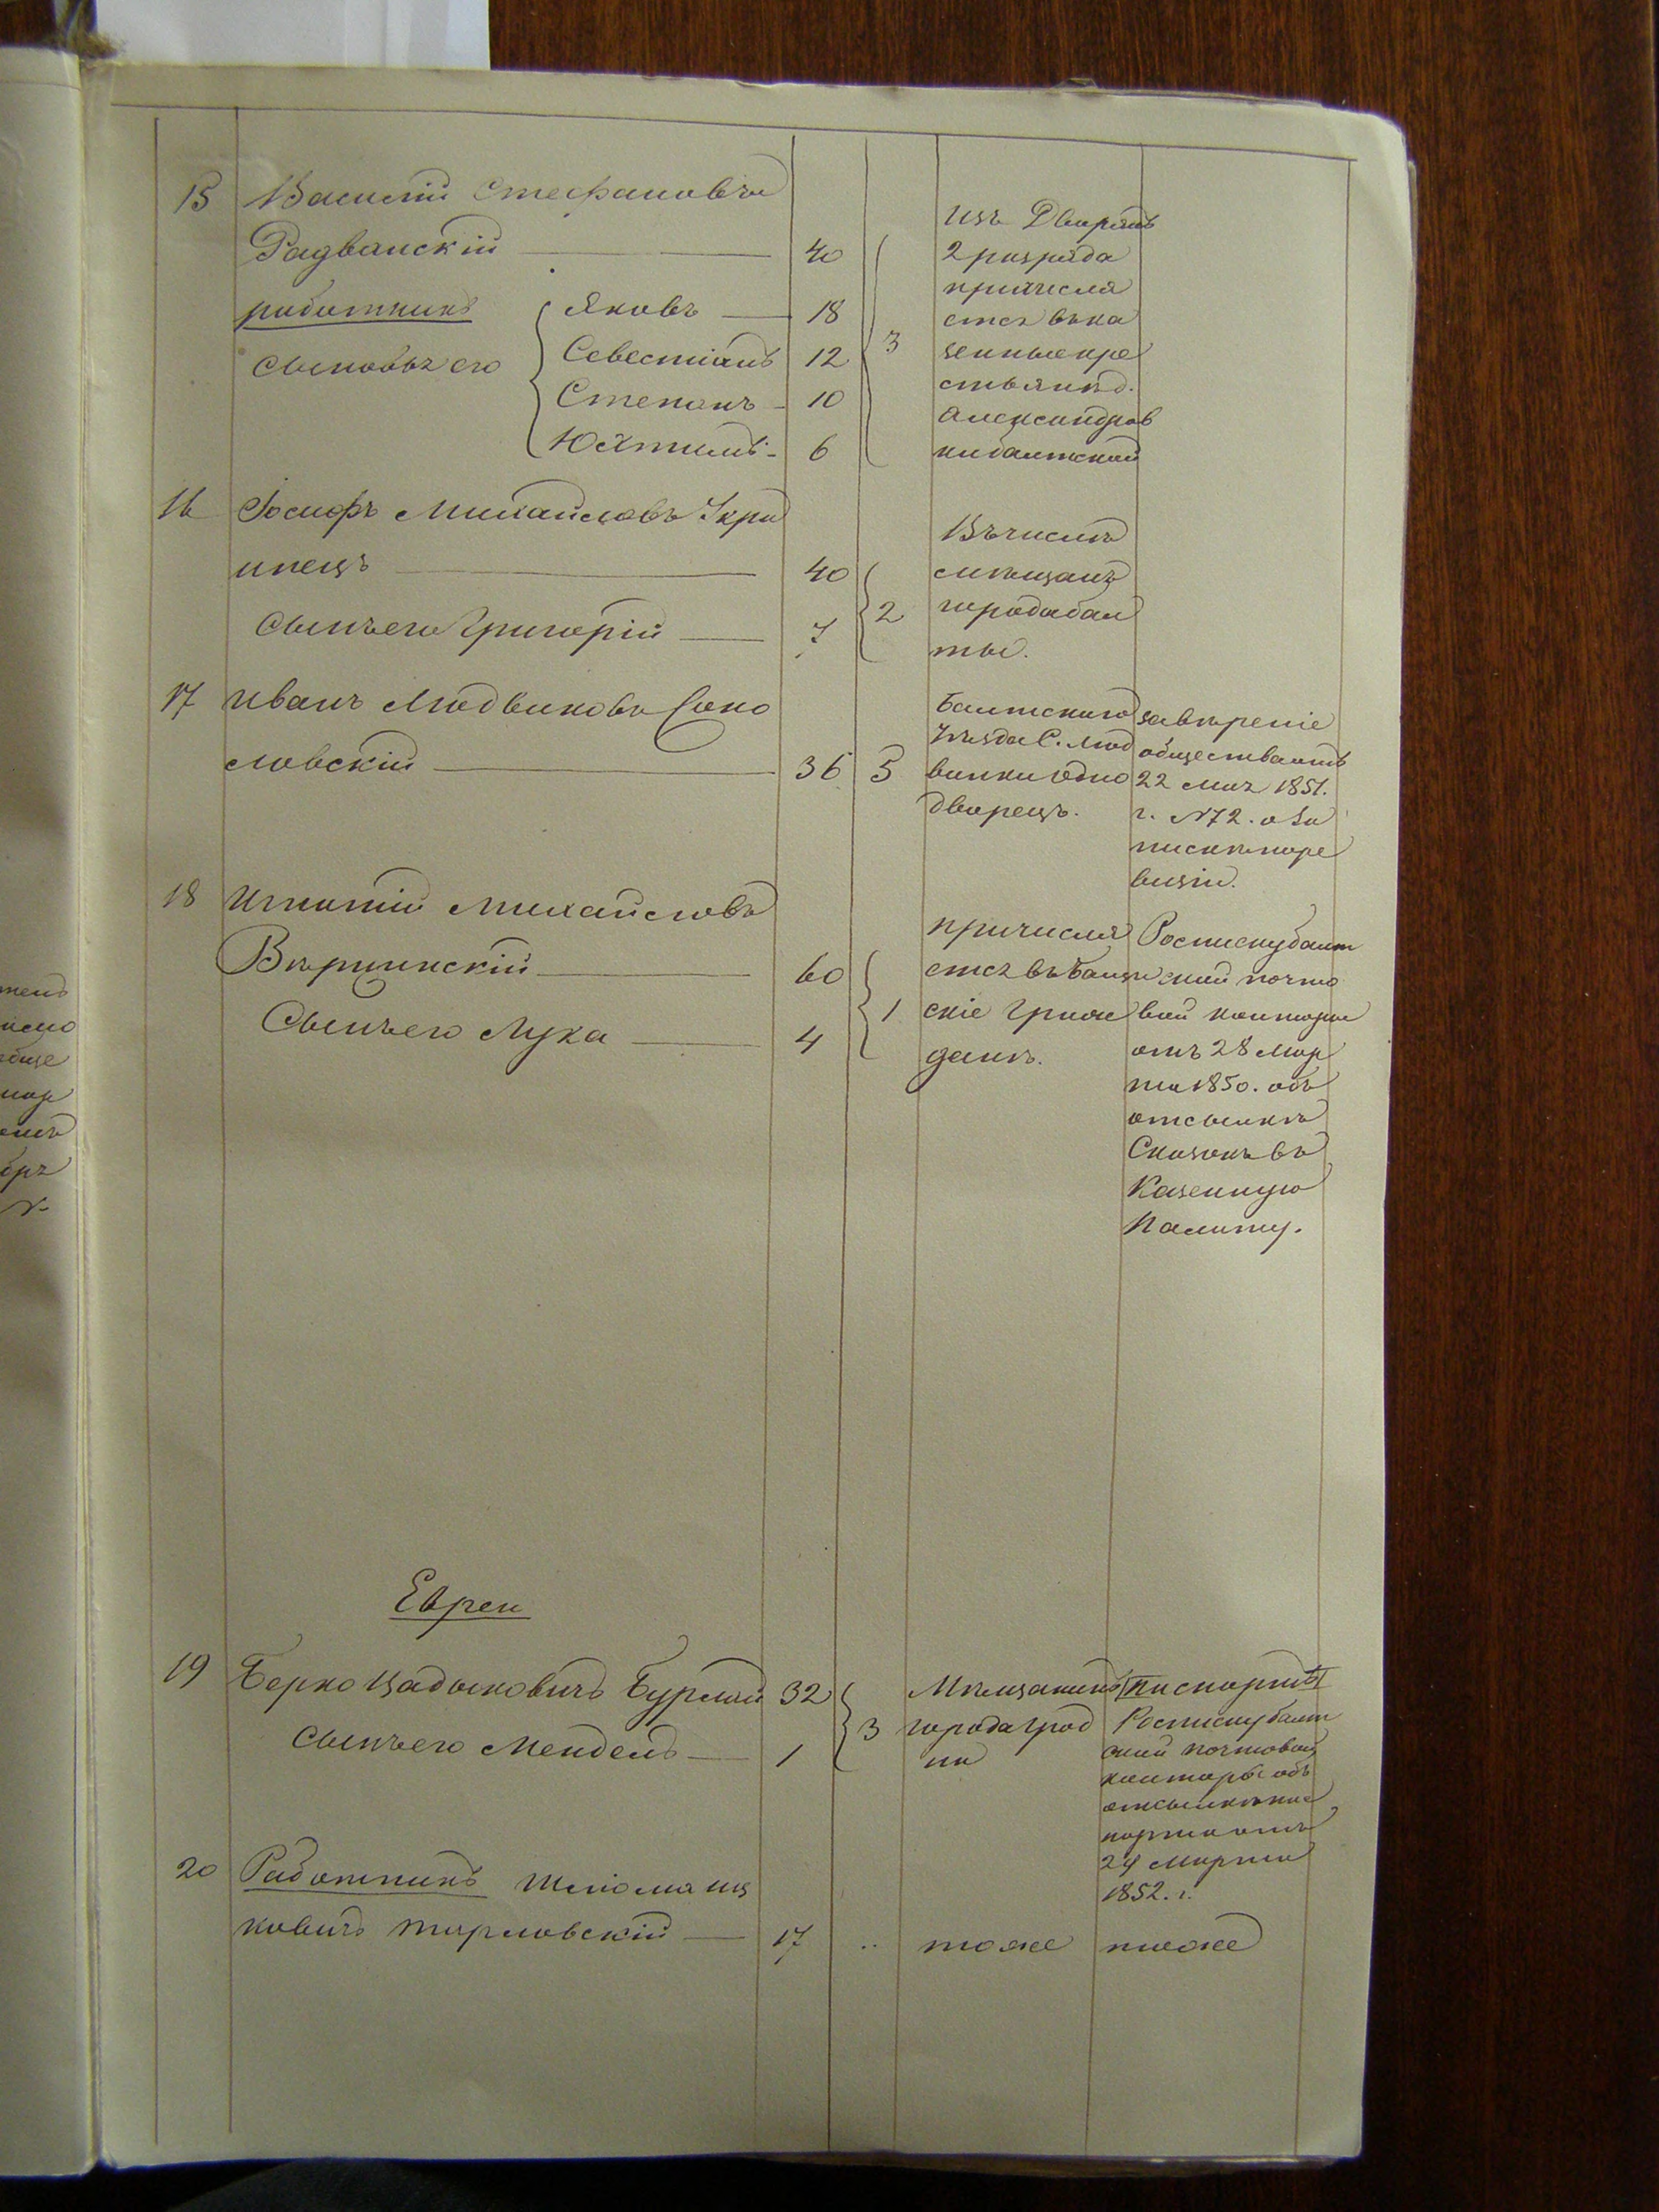 15 Василій Стефановъ
Радванскій 40
работникъ
сыновья его
Яковъ 18
Севестіанъ 12
Степанъ 10
Юхтимъ 6
3
Изъ Дворянъ
2 розряда
причисля
ется въ ка
зенные кре
стьяне д.
Александров
ки балтской
16 Іосифъ Михайловъ Скри
пнецъ 40
Сынъ его Григорій 7
2
Въ числѣ
мѣщанъ
города бал
ты.
17 Иванъ Людвиковъ Соко
ловскій 36 5
Балтскаго
Уѣзда С. Люд
винки Одно
дворецъ.
завѣреніе
общества отъ
22 Мая 1851.
г. №72. о за
пискѣ по ре
визіи.
18 Игнатій Михайловъ
Вѣржинскій 60
Сынъ его Лука 4
1
причисля
ется въ Балт
скіе Граж
дане.
Росписку балт
ской почто
вой конторы
отъ 28 Мар
та 1850. объ
отсылкѣ
Сказокъ въ
Казенную
Палату.
Евреи
19 Берко Цадыковичъ Бурлай 32
Сынъ его Мендель 1
3
Мѣщанинъ
города Град
на
Паспортъ
Росписку балт
ской почтовой
конторы объ
отсылкѣ пас
порта отъ
24 Марта
1852. г.
20 Работникъ Шліома Иц
ковичъ Тирловскій 17 ..
тоже тоже